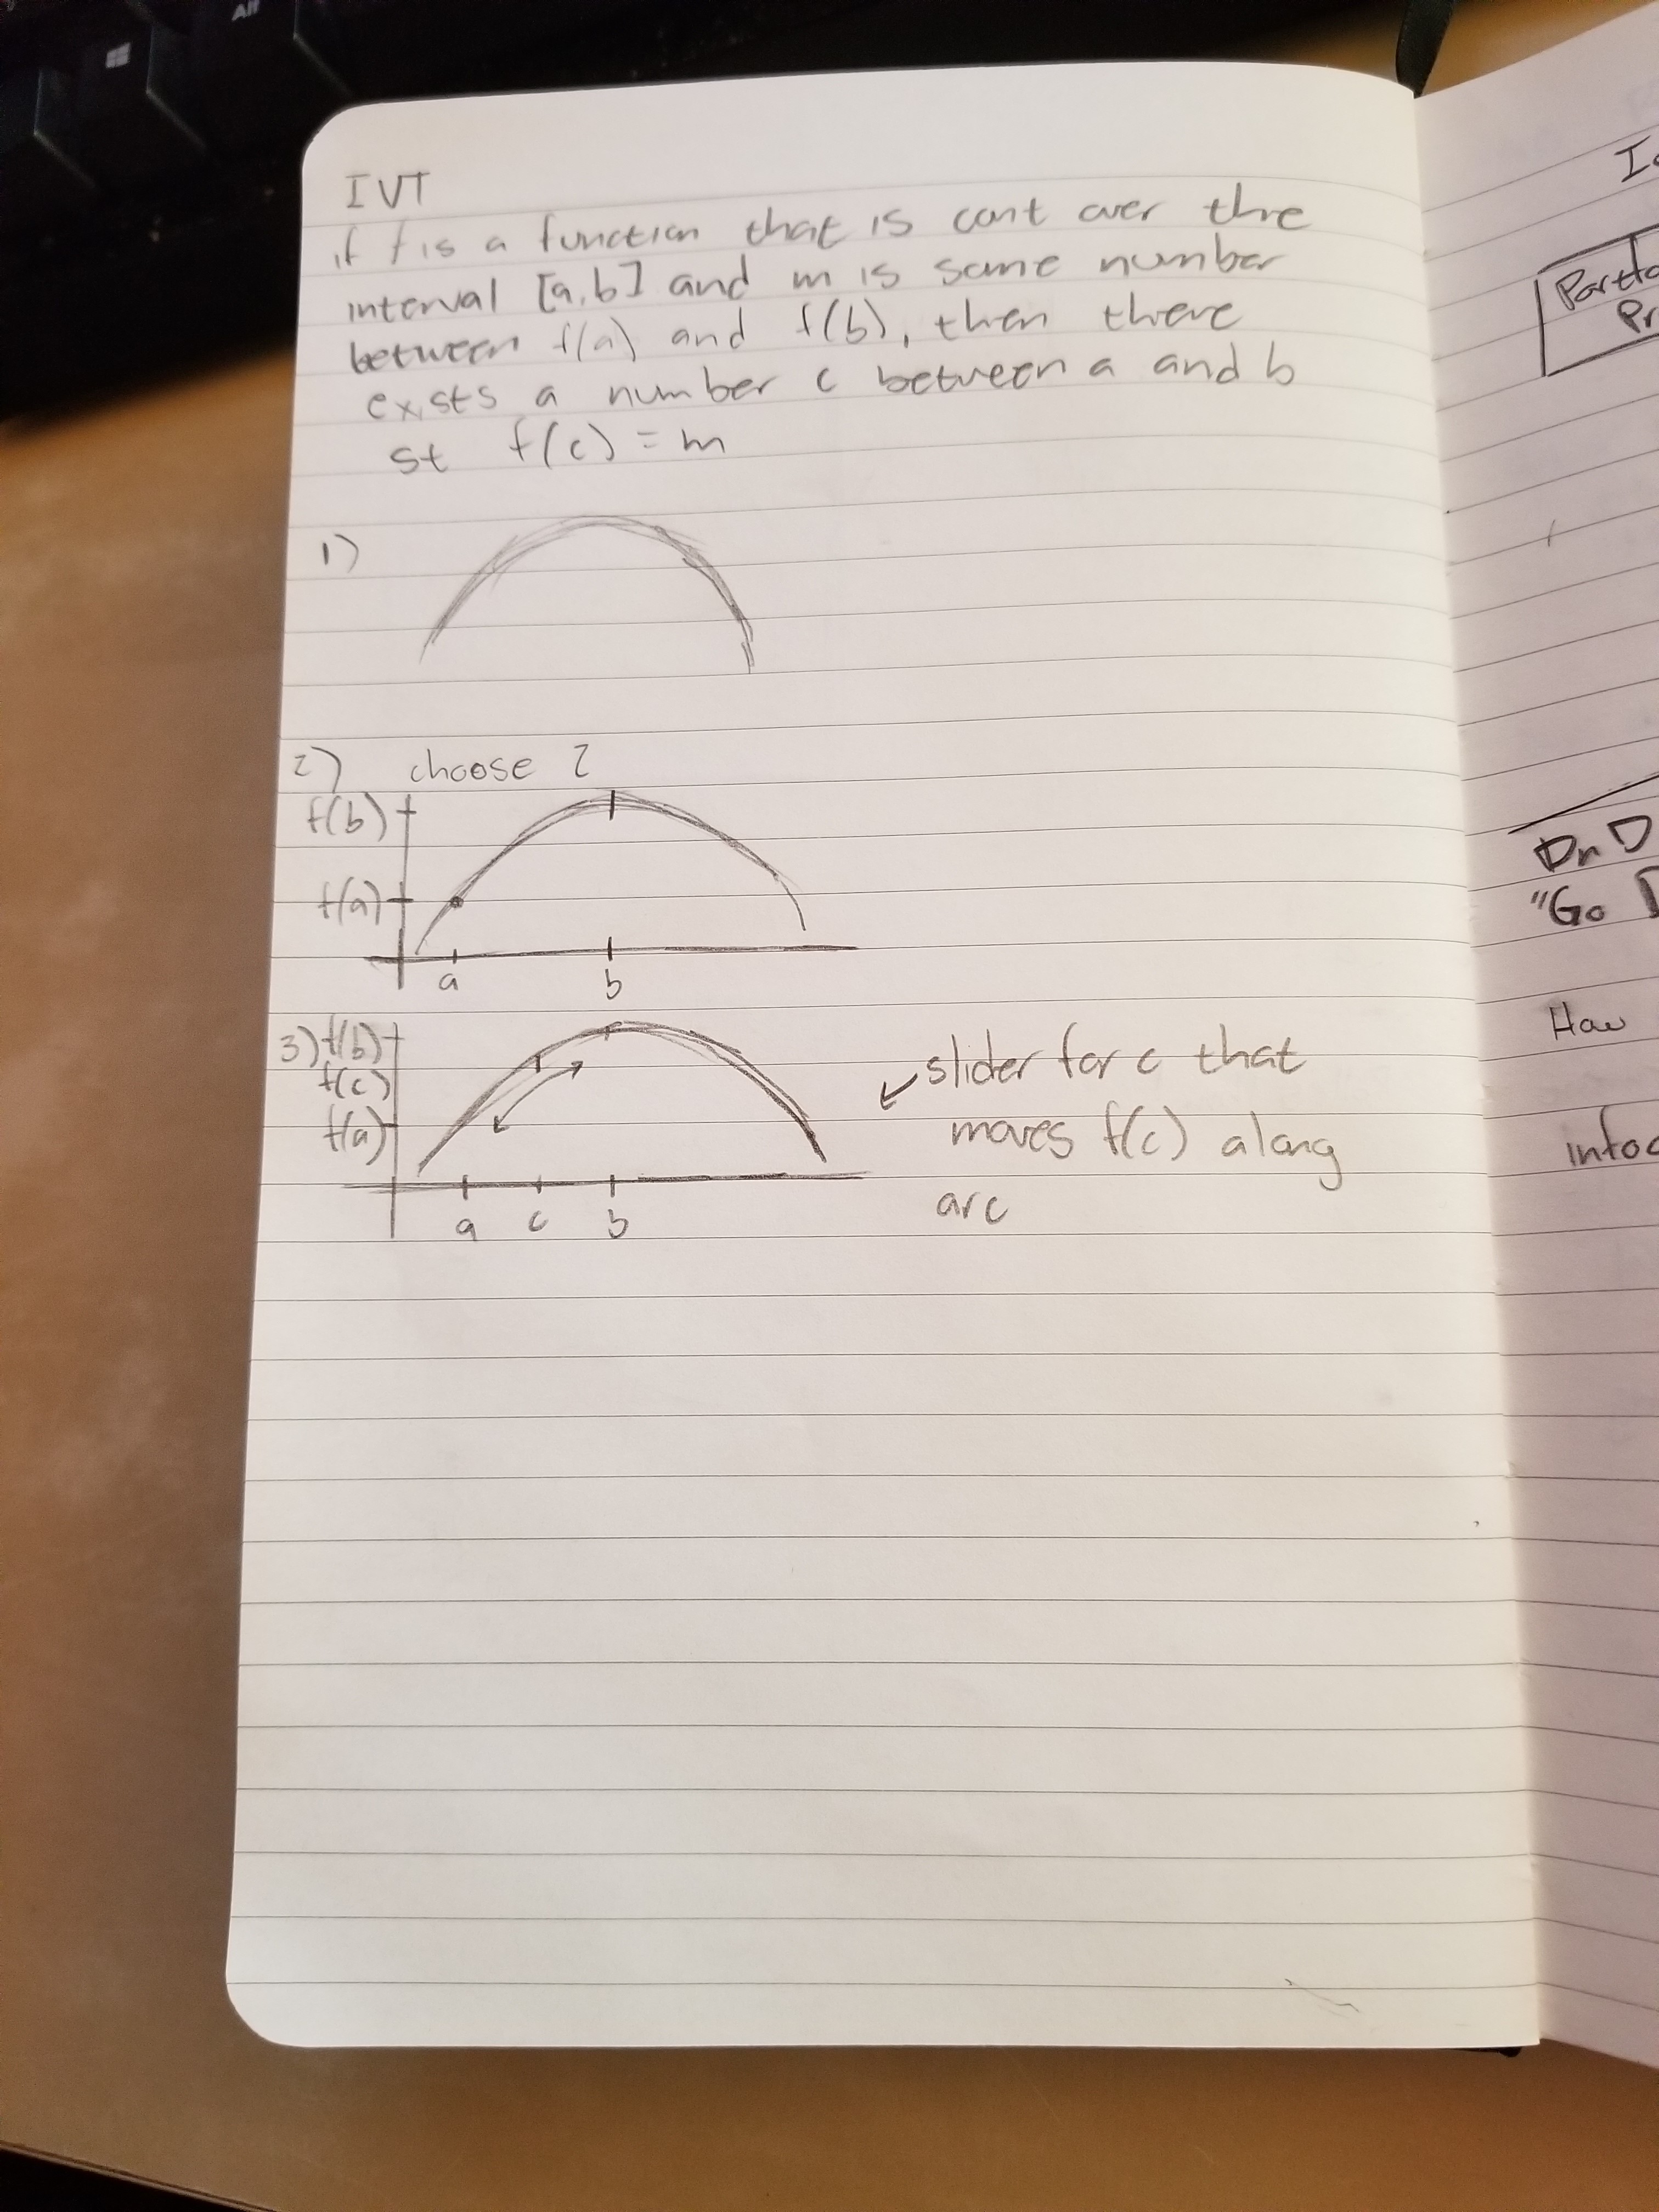 IVT
if f is a function that is cont over the
interval [a,b] and m is some number
between f(a) and f(b), then there
exists a number c between a and b
st f(c) = m
1)
2) choose 2
f(b)
f(a)
a b
3) f(b)
f(c)
f(a)
a c b
slider for c that
moves f(c) along
arc
Dn D
"Go
How
Alt